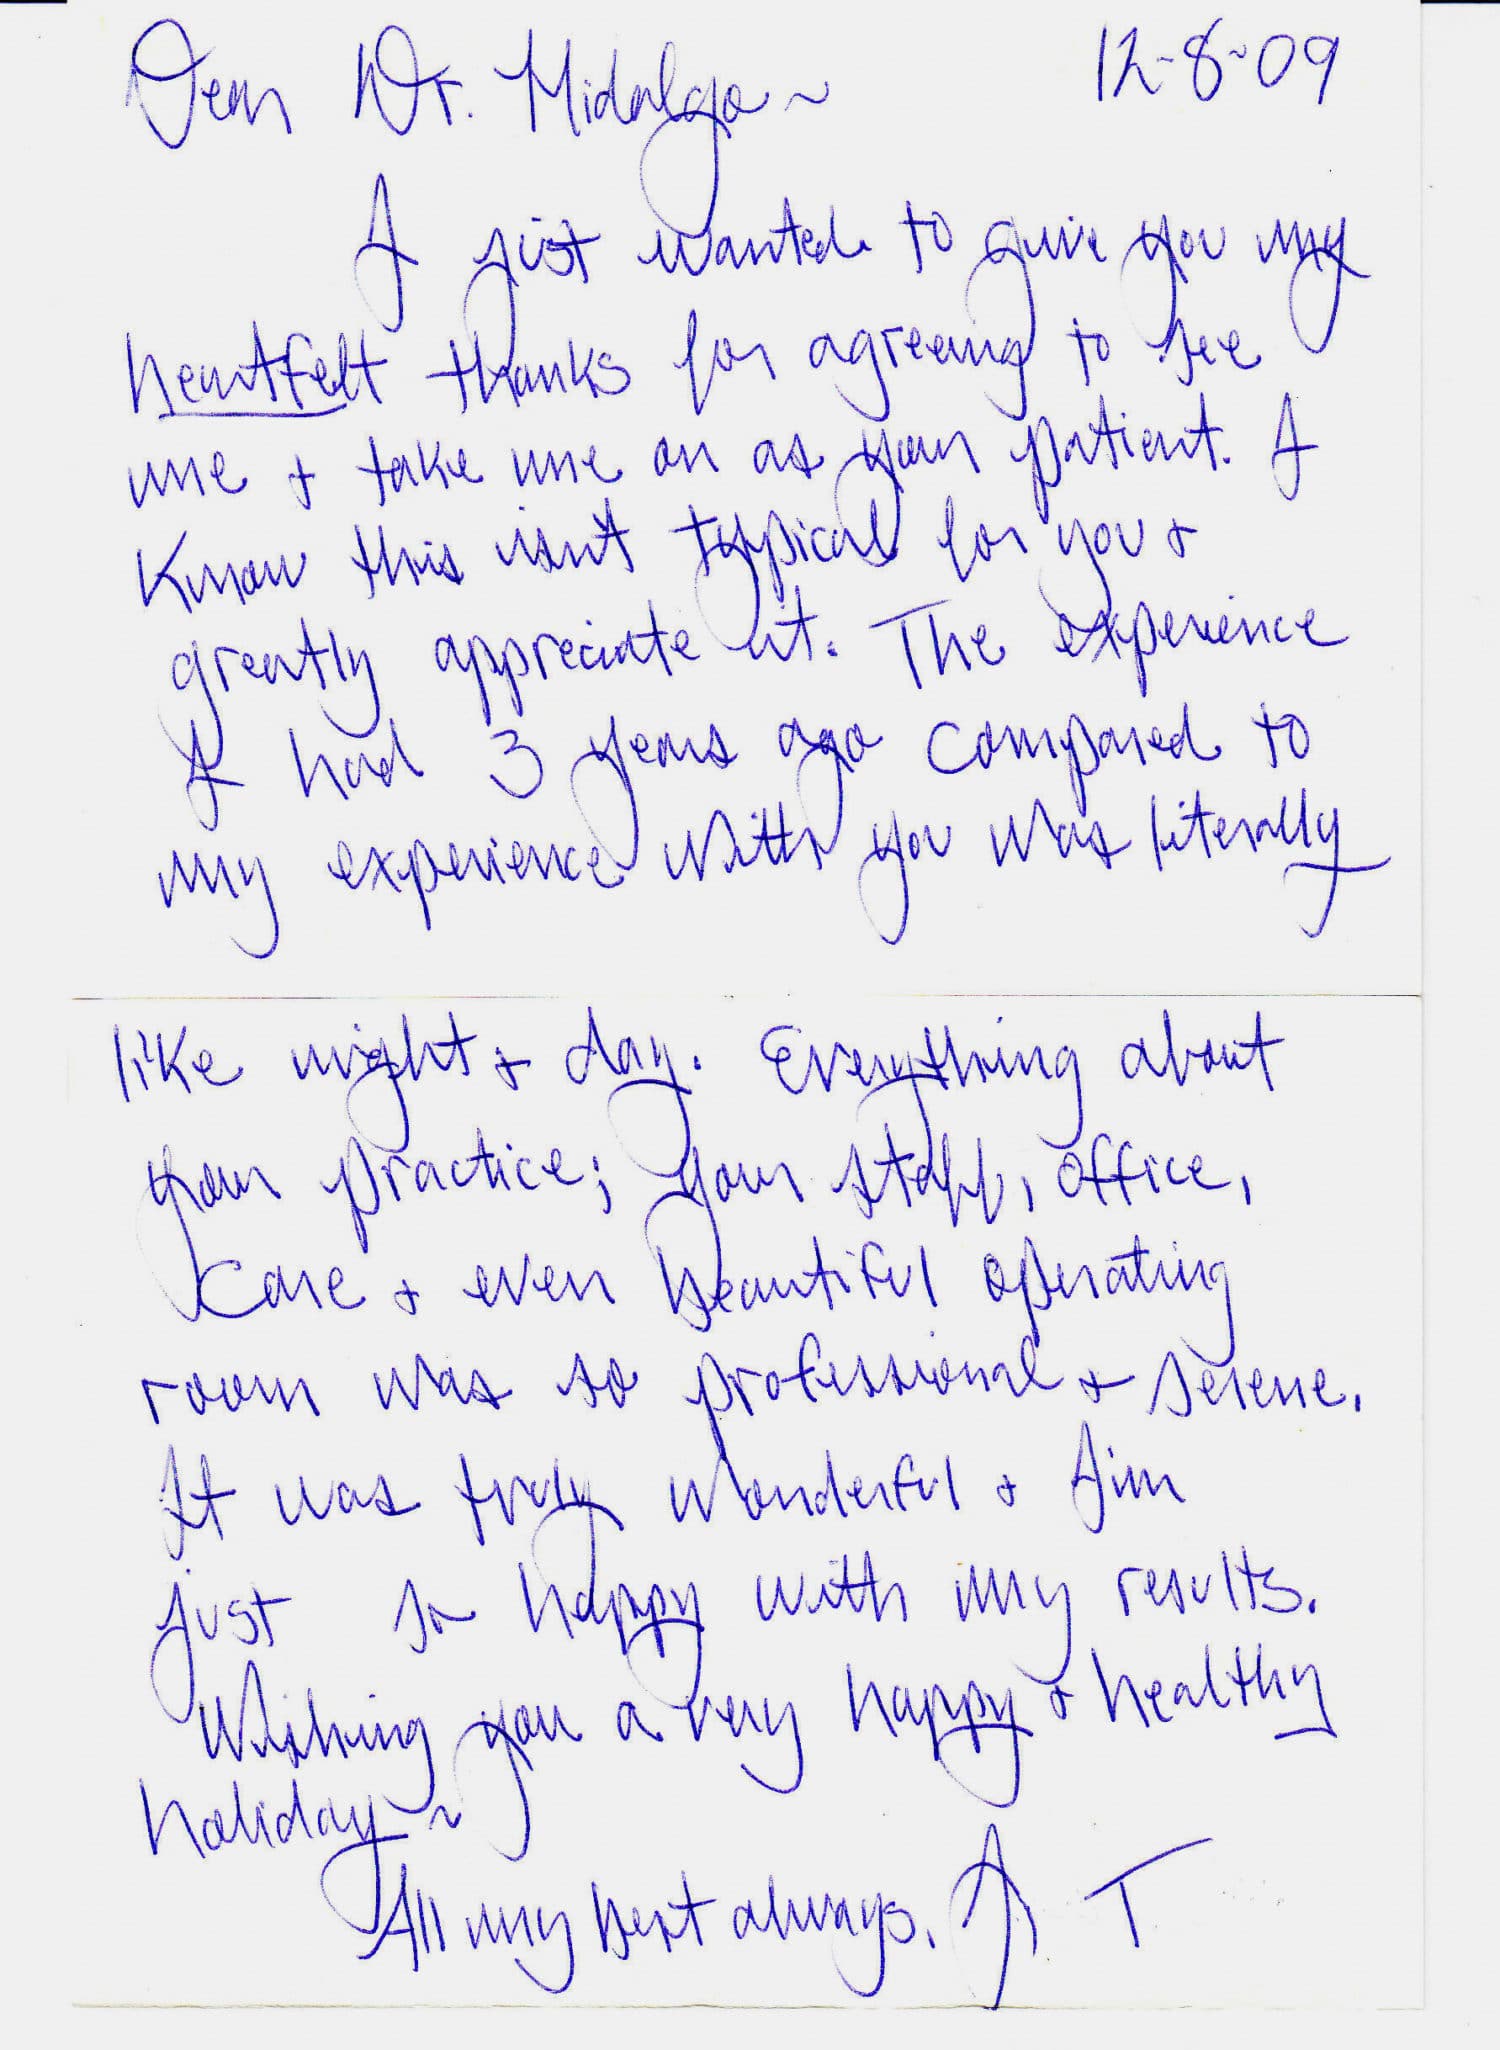 Dear Dr. Hidalgo ~ 12-8-09
I just wanted to give you my
heartfelt thanks for agreeing to see
me + take me on as your patient. I
know this isn't typical for you +
greatly appreciate it. The experience
I had 3 years ago compared to
my experience with you was literally
like night + day. Everything about
your practice; your staff, office,
care + even beautiful operating
room was so professional + serene.
It was truly wonderful + I'm
just so happy with my results.
Wishing you a very happy + healthy
holiday ~
All my best always, T